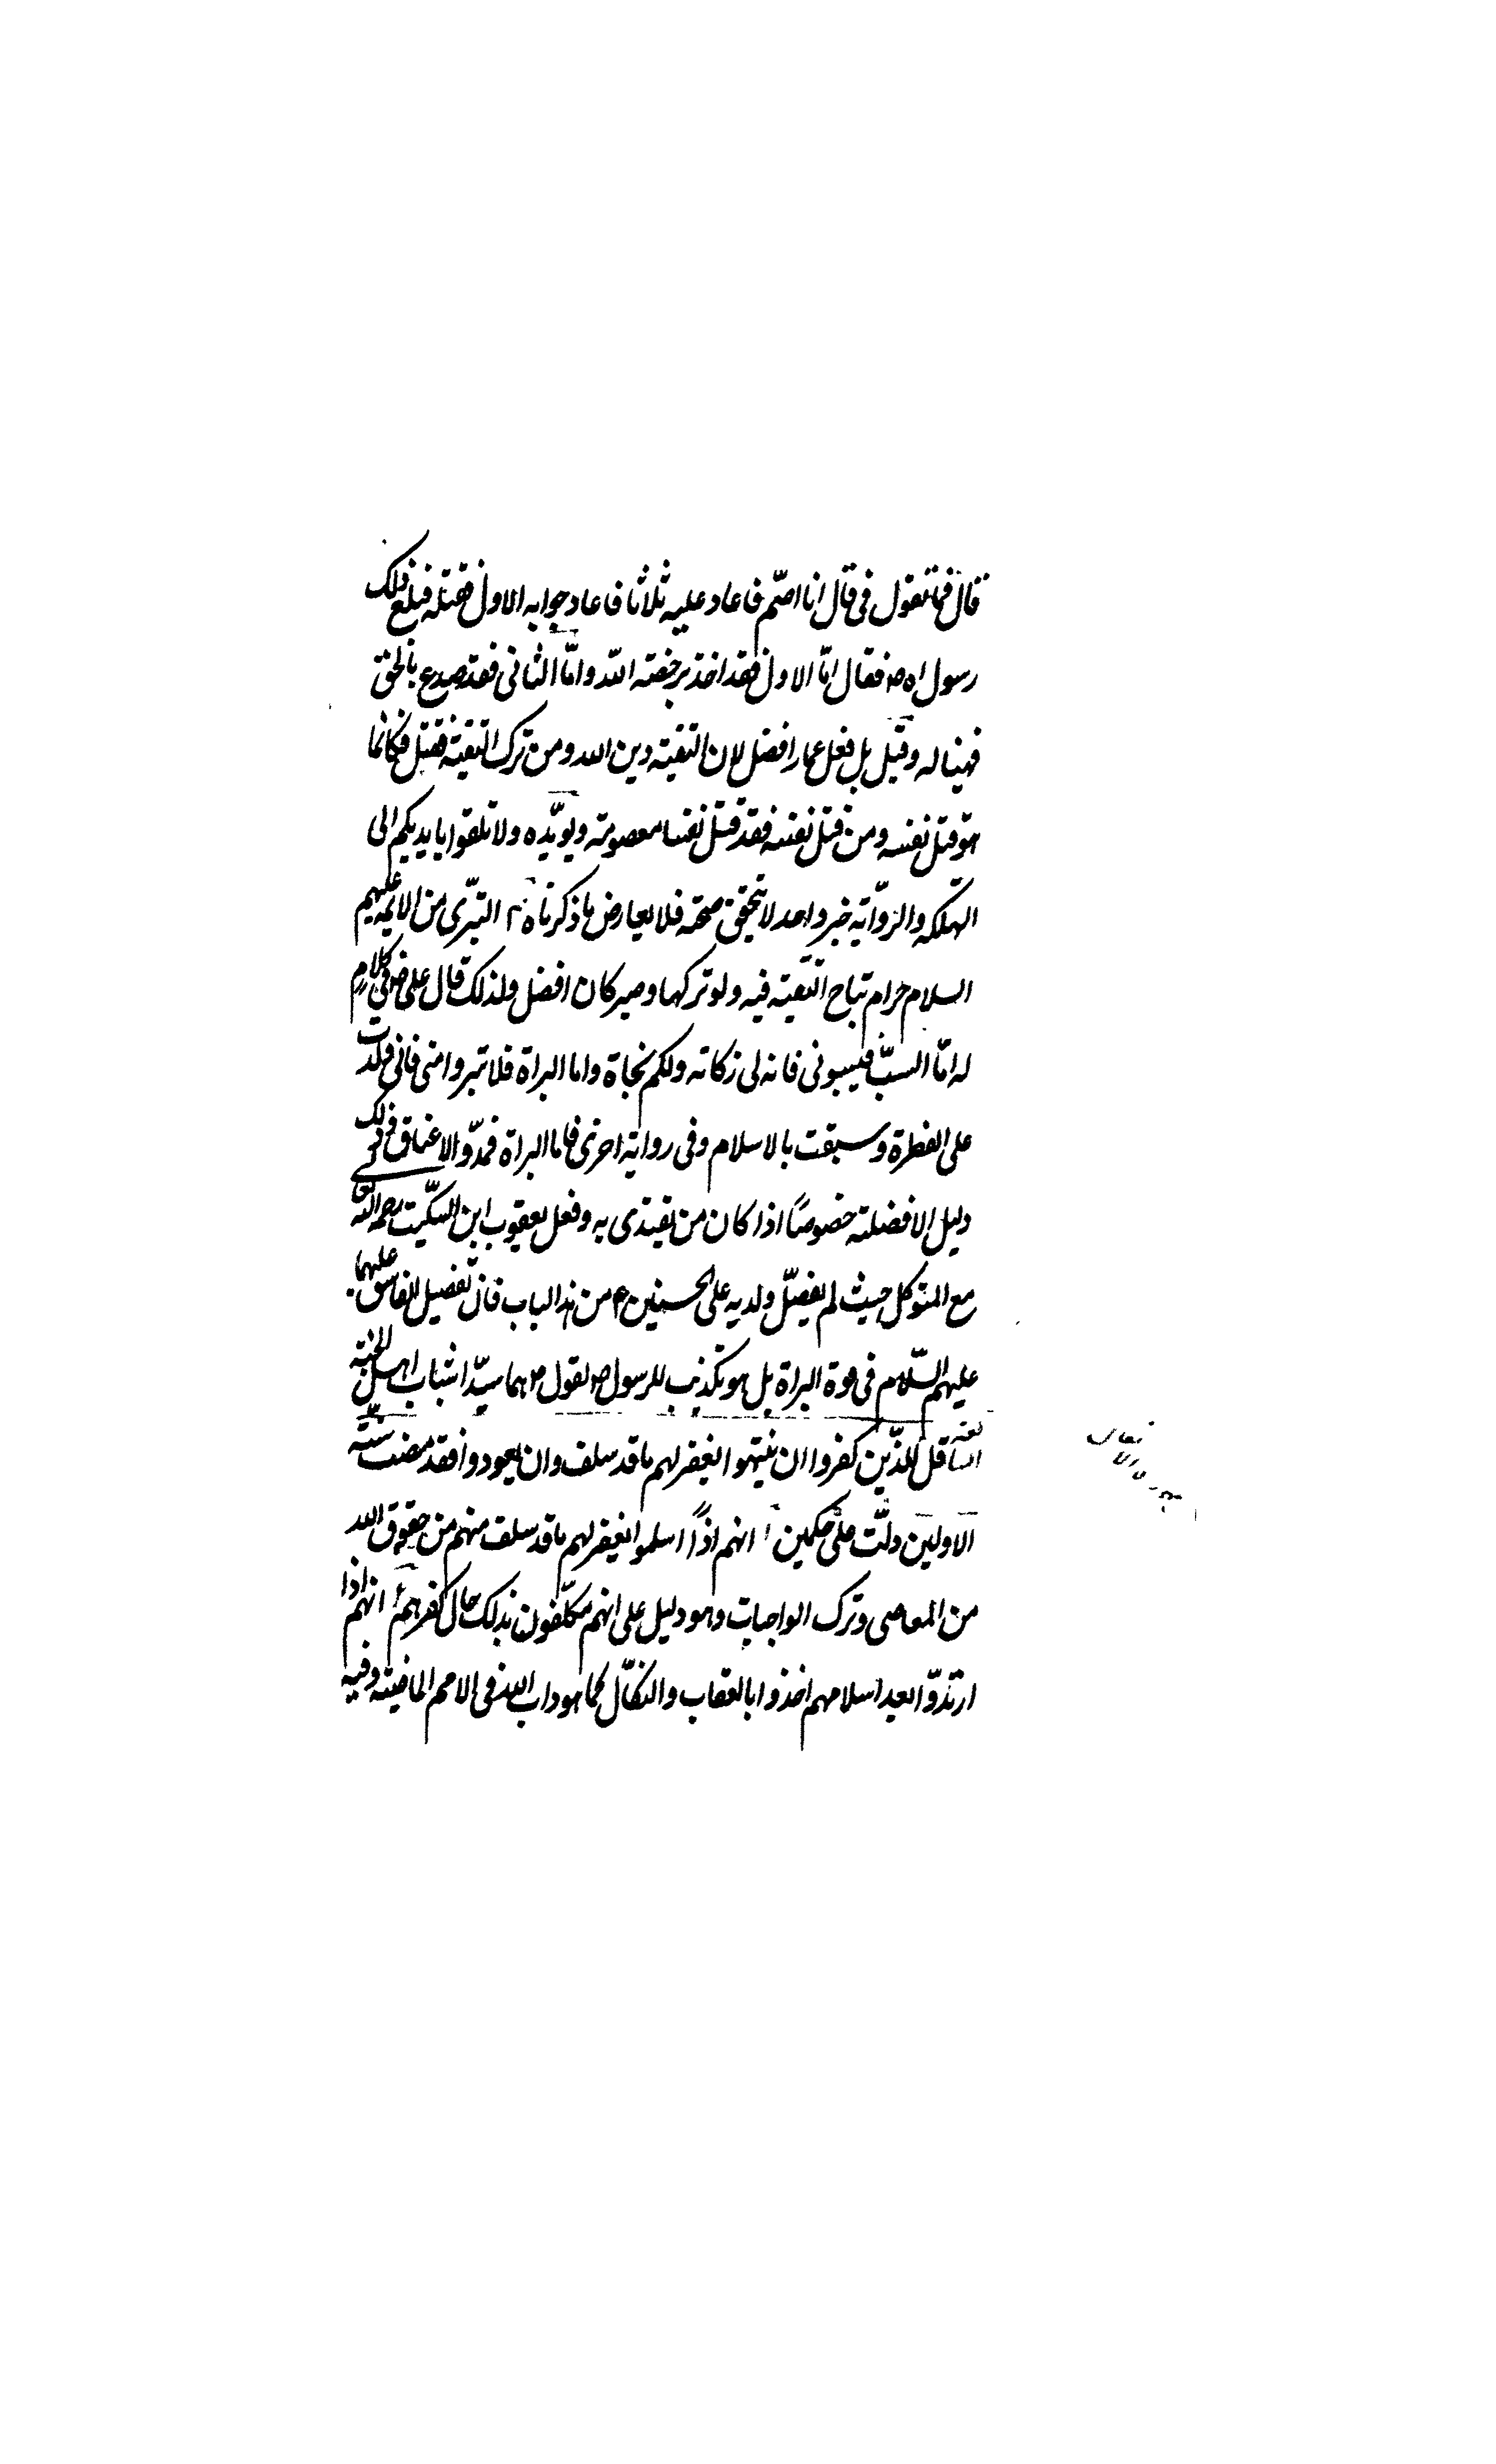 قال فما تقول فى قال انا اصّم فاعاد عليه ثلاثا فاعاد جوابه الاول فقتله فبلغ ذلك
رسول اه ص فقال امّا الاول فقد اخذ برخصة اللّه وامّا الثانى فقد صدع بالحق
فهنيئا له وقيل بل فعل عمار افضل لان التقية دين اللد ومن ترك التقية فقتل فكانما
هو قتل نفسه ومن قتل نفسه فقد قتل نفسا معصومة ويويّده ولا تلقوا بايديكم الى
التهلكه والروّاية خبر واحد لا يتحقق صحته فلا يعارض ما ذكرناه ٣ التبرّى من الايمة عليهم
السلام حرام تباح التقية فيه ولو تركها وصبر كان افضل ولذلك قال على ع فى كلام
له امّا السبّ فسبونى فانه لى زكاة ولكم نجاة واما البراة فلا تبروا منى فانى ولدت
على الفطرة وسبقت بالاسلام وفى رواية اخرى فاما البراة فمدّوا الاعناق فى ذلك
دليل الافضلية خصوصًا اذا كان من يقتدى به وفعل يعقوب ابن السكّيت رحمه اللّه تعا
مع المتوكل حيث لم يفضّل ولديه على الحسنين ع من هذا الباب فان تفضيل الفاسق عليهما
عليهم السّلام فى قوة البراة بل هو تكذيب للرسول ص لقول ص هما سيّدا شباب اهل الجنة
قل للذّين كفروا ان ينتهوا يغفر لهم ما قد سلف وان يعودوا فقد مضت سنّة
الاولين دلّت على حكمين ا انهم اذًا اسلموا يغفر لهم ما قد سلف منهم من حقوق اللد
من المعاصى وترك الواجبات وهو دليل على انهم مكلّفون بذلك حال كفرهم انهم اذا
ارتدّوا بعد اسلامهم اخذوا بالعقاب والنكّال كما هو داب اللد فى الامم الماضية وفيه